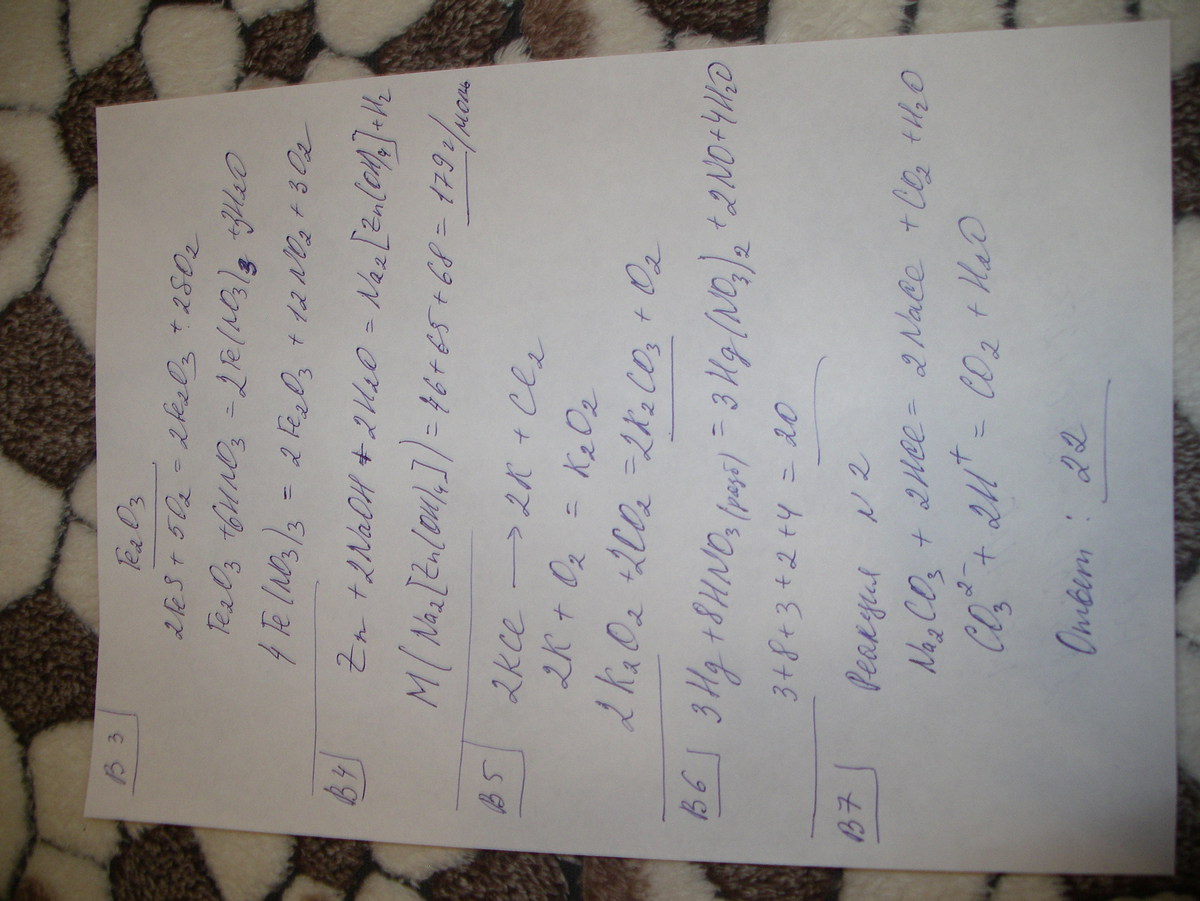 В 3
Fe₂O₃
2FeS + 5O₂ = 2Fe₂O₃ + 2SO₂
Fe₂O₃ + 6HNO₃ = 2Fe(NO₃)₃ + 3H₂O
4Fe(NO₃)₃ = 2Fe₂O₃ + 12NO₂ + 3O₂
В4
Zn + 2NaOH + 2H₂O = Na₂[Zn(OH)₄] + H₂
M(Na₂[Zn(OH)₄]) = 46+65+68 = 179 г/моль
В5
2KCl ⟶ 2K + Cl₂
2K + O₂ = K₂O₂
2K₂O₂ + 2CO₂ = 2K₂CO₃ + O₂
В6
3Hg + 8HNO₃(разб) = 3Hg(NO₃)₂ + 2NO + 4H₂O
3+8+3+2+4 = 20
В7
Реакция N 2
Na₂CO₃ + 2HCl = 2NaCl + CO₂ + H₂O
CO₃²⁻ + 2H⁺ = CO₂ + H₂O
Ответ: 22